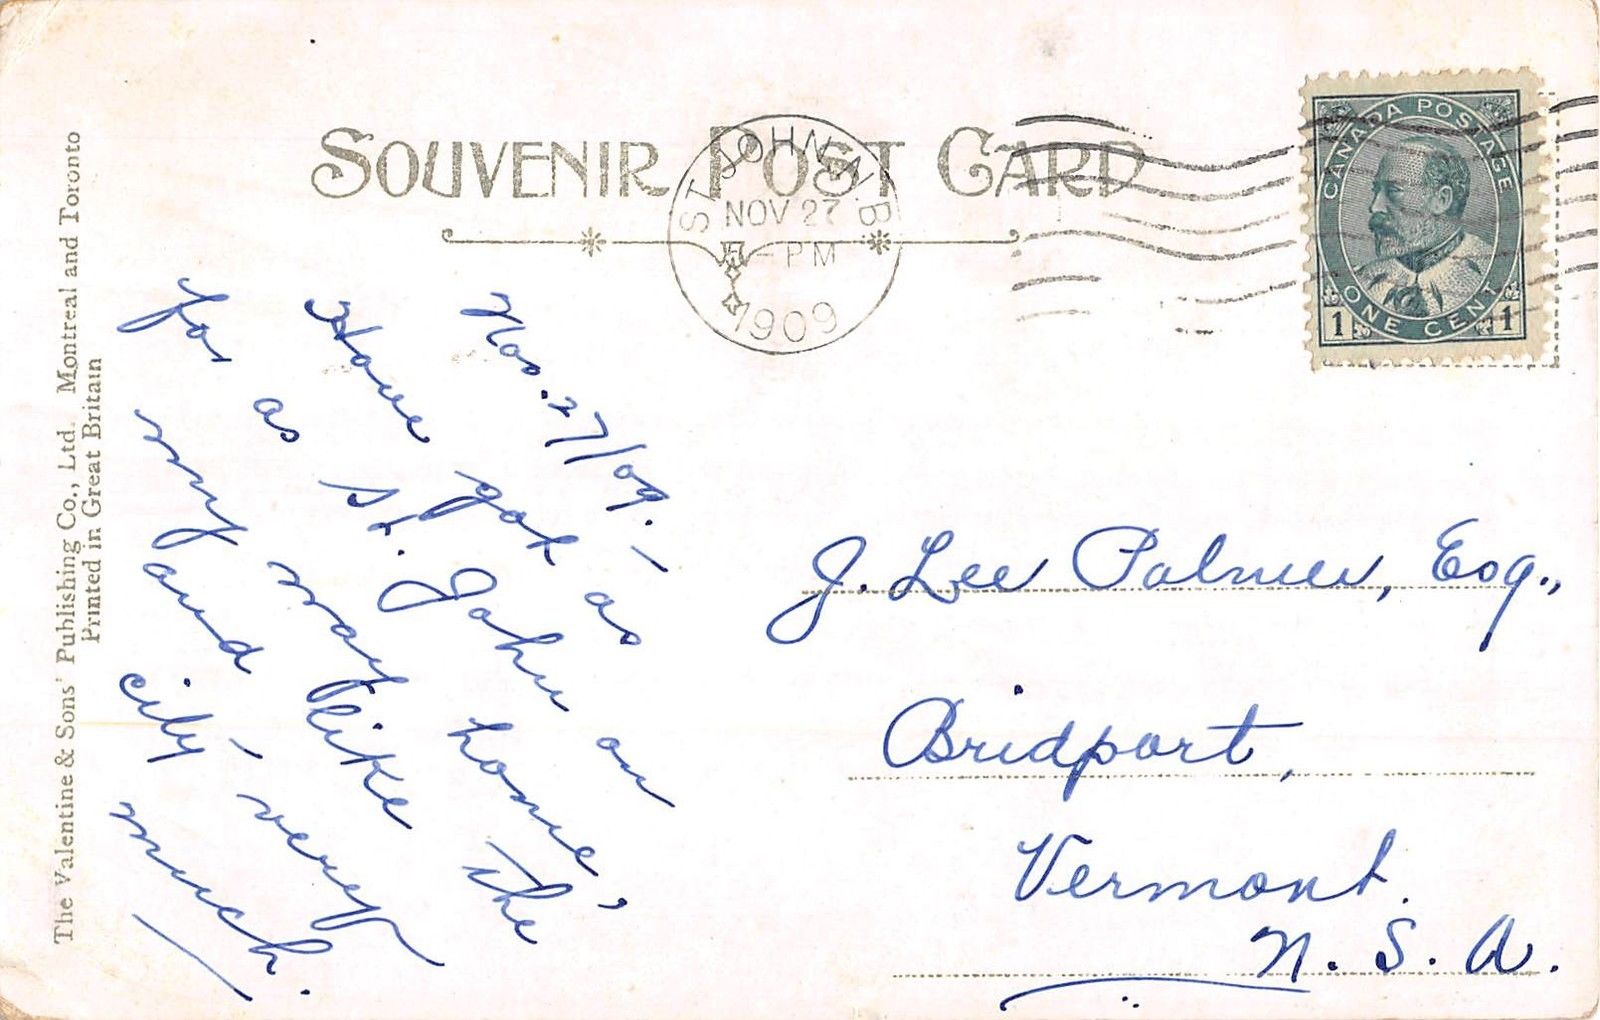 SOUVENIR POST CARD
ST. JOHN, N.B.
NOV 27
5 - PM
1909
CANADA POSTAGE
ONE CENT
1 1
The Valentine & Sons' Publishing Co., Ltd. Montreal and Toronto
Printed in Great Britain
Nov. 27/09. —
Have got as
far as St. John on
my way home,
and like the
city — very
much.
J. Lee Palmer, Esq.,
Bridport,
Vermont.
U. S. A.